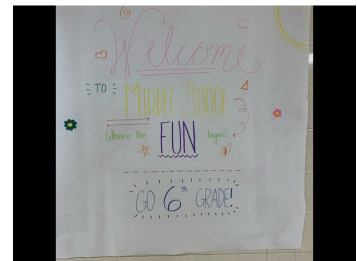 Welcome
TO
MIDDLE SCHOOL
Where the FUN begins!
GO 6th GRADE!